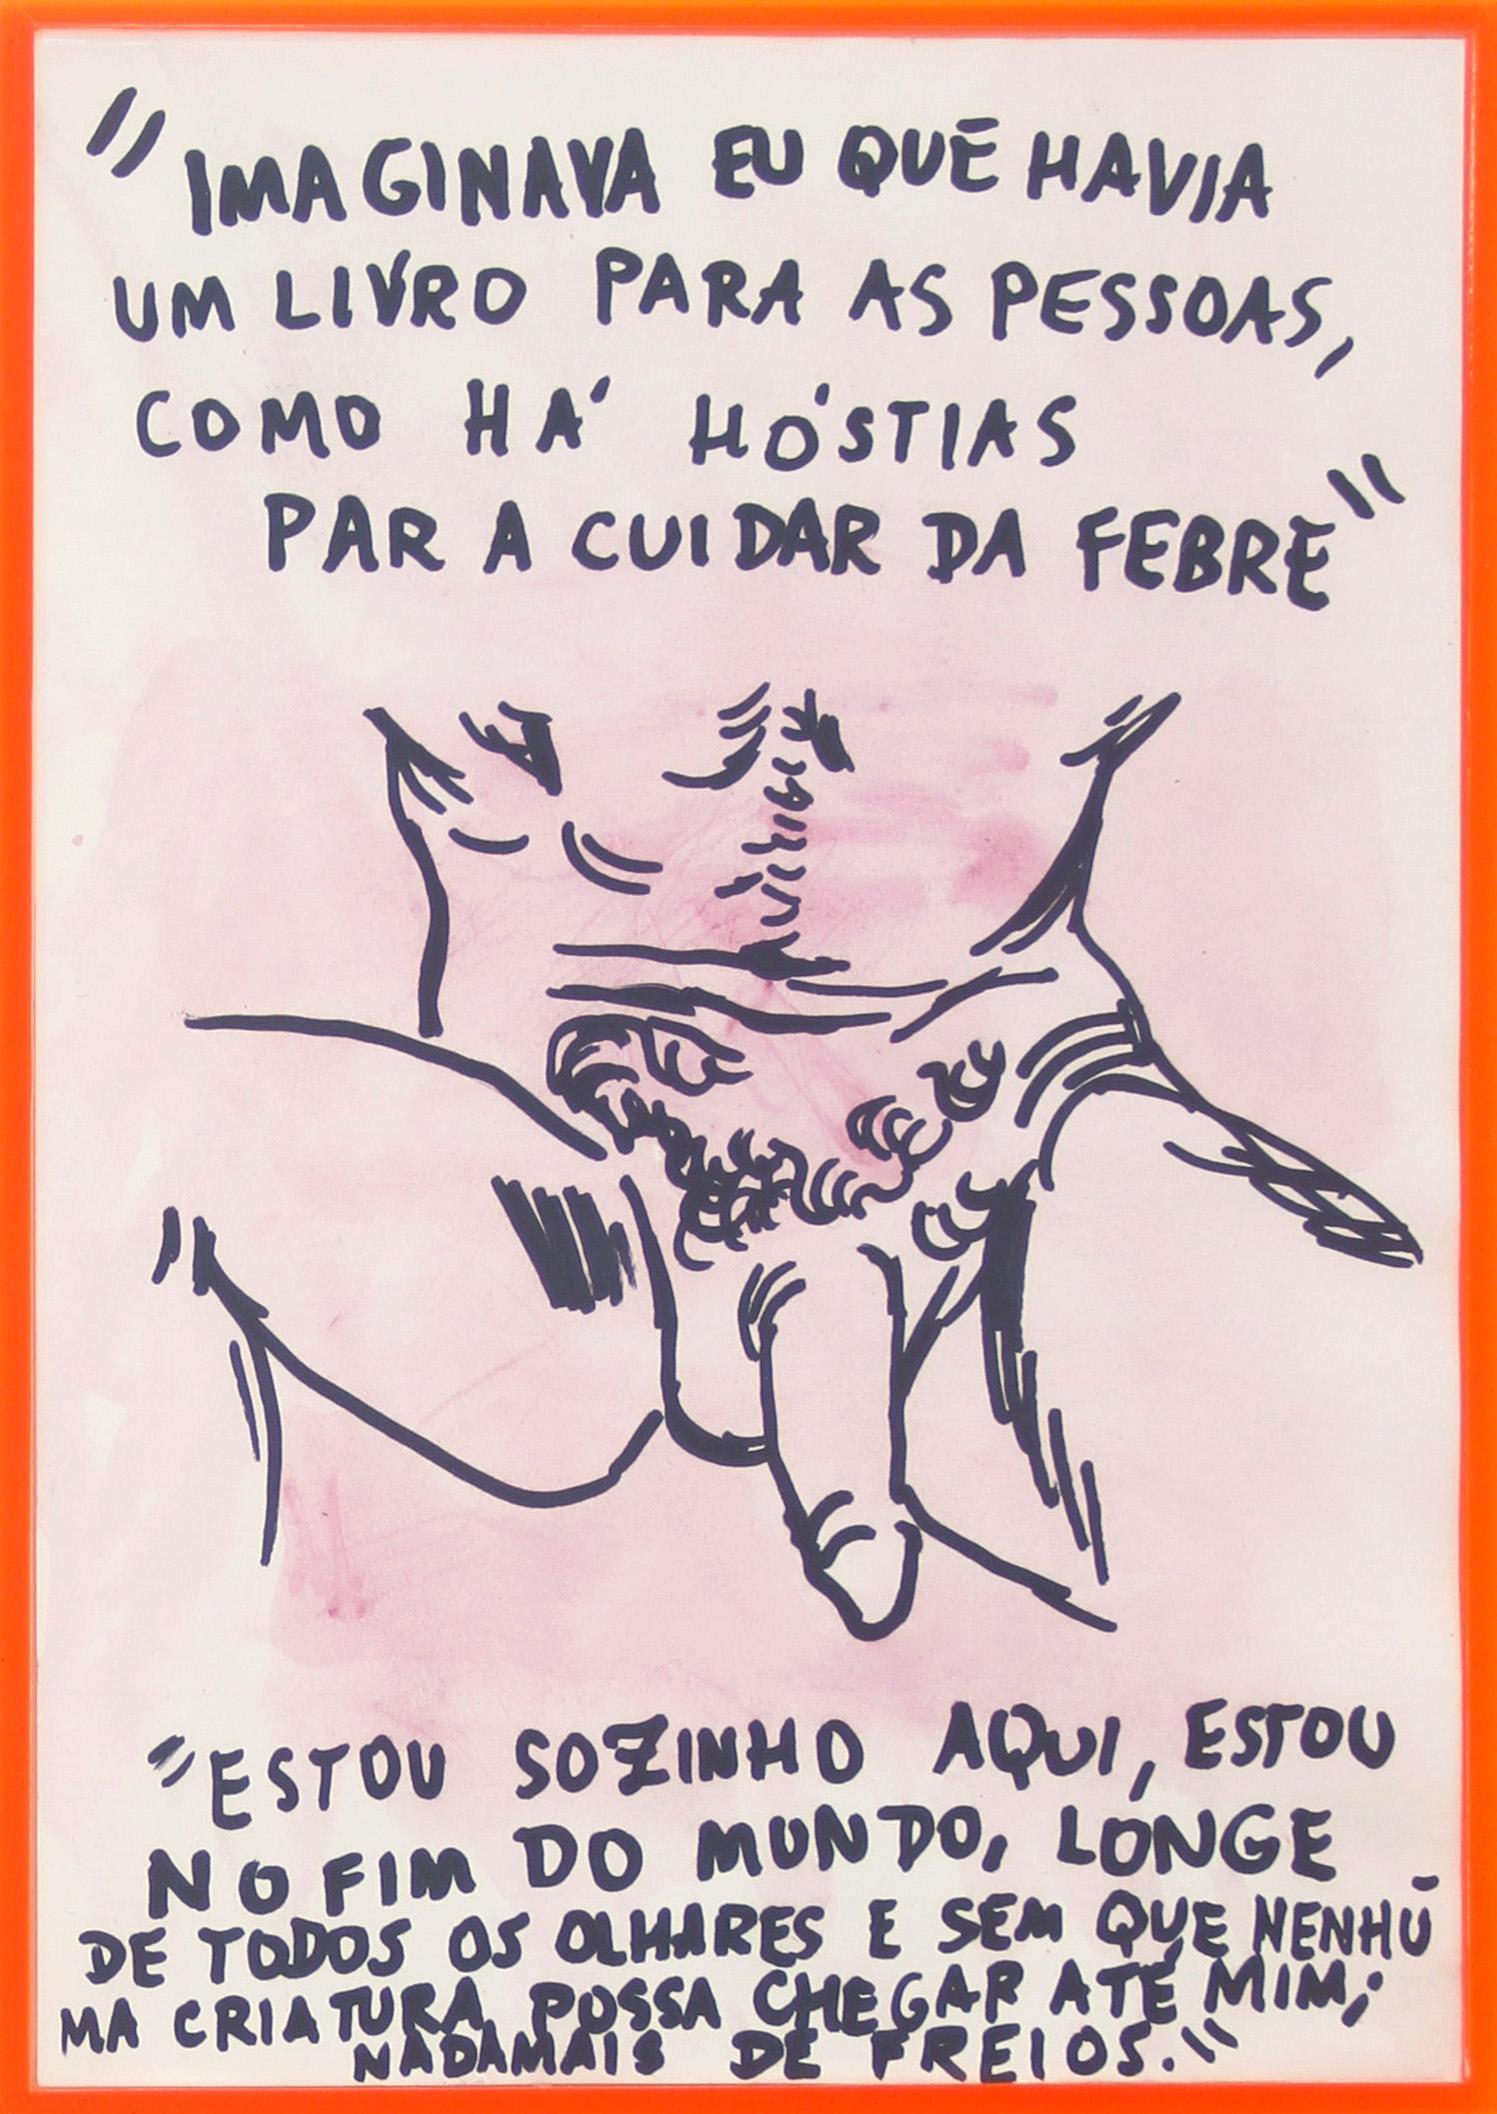 "IMAGINAVA EU QUE HAVIA
UM LIVRO PARA AS PESSOAS,
COMO HÁ HÓSTIAS
PARA CUIDAR DA FEBRE"
"ESTOU SOZINHO AQUI, ESTOU
NO FIM DO MUNDO, LONGE
DE TODOS OS OLHARES E SEM QUE NENHU
MA CRIATURA POSSA CHEGAR ATÉ MIM;
NADAMAIS DE FREIOS."